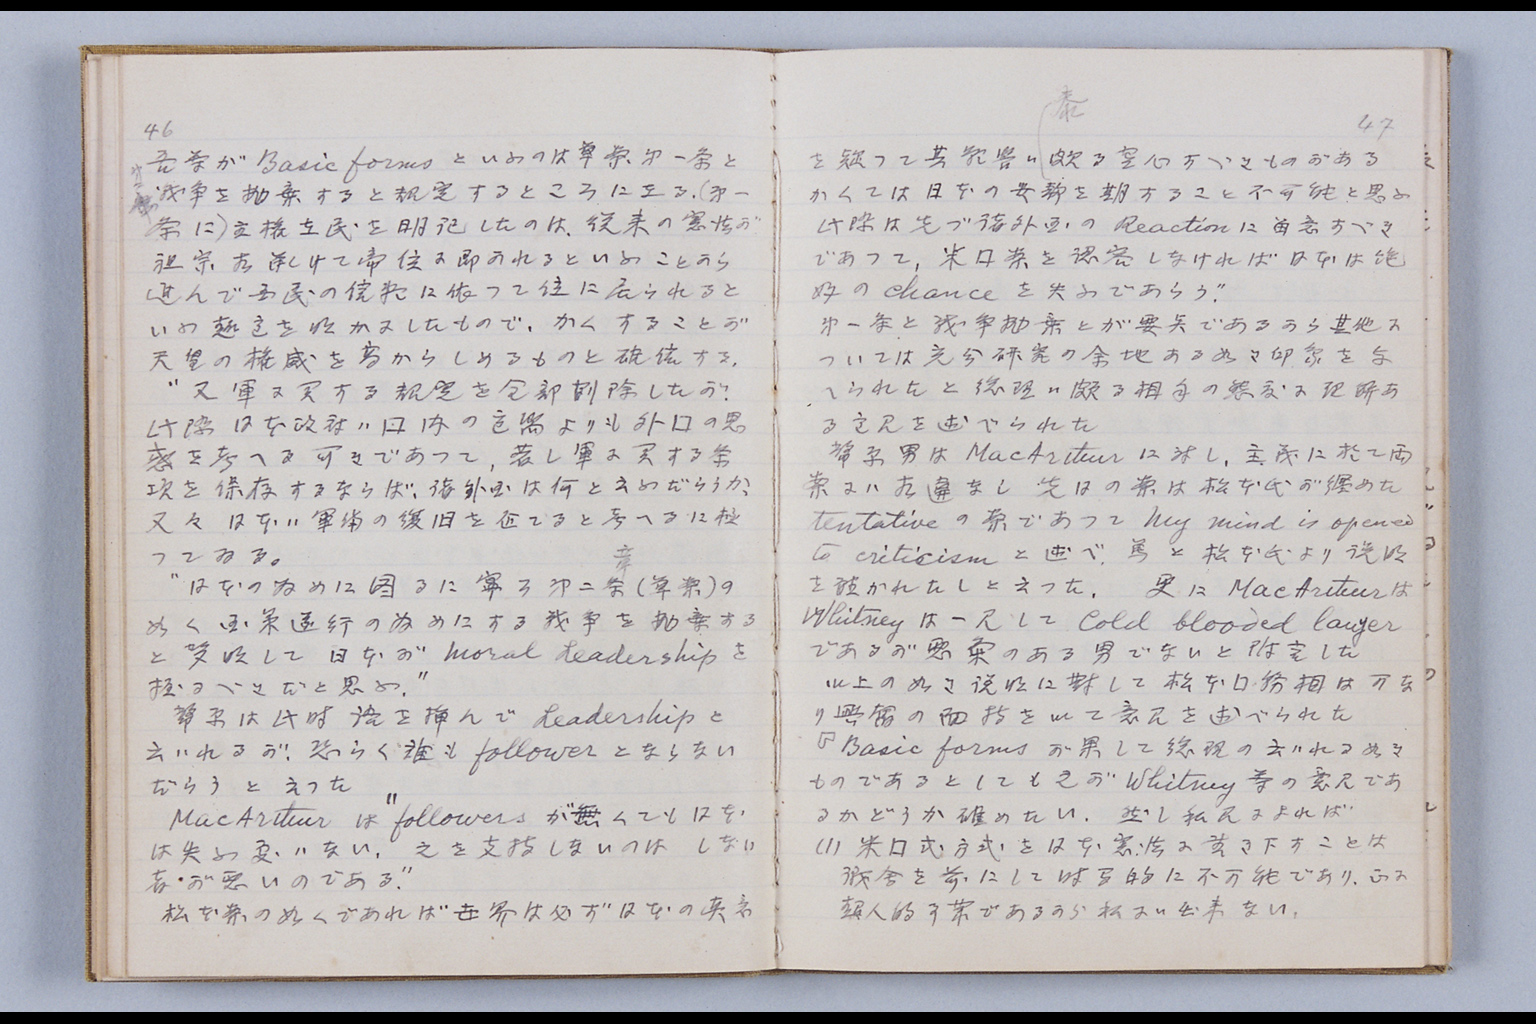 46
吾等が Basic forms といふのは草案第一条と
戦争を抛棄すると規定するところに在る.(第一
条に)主権在民を明記したのは、従来の憲法が
祖宗相承けて帝位に即かれるといふことから
進んで国民の信頼に依つて位に居られると
いふ趣意を明かにしたもので、かくすることが
天皇の権威を高からしめるものと確信する.
"又軍に関する規定を全部削除したが
此際日本政府は国内の意嚮よりも外国の思
惑を考へる可きであつて, 若し軍に関する条
項を保存するならば、諸外国は何と云ふだらうか、
又々日本は軍備の復旧を企てると考へるに極
つてゐる。
章
"日本の為めに図るに寧ろ第二条(草案)の
如く国策遂行の為めにする戦争を抛棄する
と声明して日本が moral leadership を
握るべきだと思ふ."
幣原は此時語を挿んで leadership と
云はれるが、恐らく誰も follower とならない
だらうと云つた
MacArthur は "followers が無くても日本
は失ふ処はない. 之を支持しないのは しない
者が悪いのである."
松本案の如くであれば世界は必ず日本の真意
47
を疑つて其影響は頗る寒心すべきものがある
かくては日本の安寧を期すること不可能と思ふ
此際は先づ諸外国の Reaction に留意すべき
であつて, 米国案を認容しなければ日本は絶
好の chance を失ふであらう."
第一条と戦争抛棄とが要点であるから其他に
ついては充分研究の余地ある如き印象を与
へられたと総理は頗る相手の態度に理解あ
る意見を述べられた
幣原男は MacArthur に対し, 主義に於て両
案には相違なし 先日の案は松本氏が纏めた
tentative の案であつて My mind is opened
to criticism と述べ, 篤と松本氏より説明
を聴かれたしと云つた. 更に MacArthur は
Whitney は一見して Cold blooded lawyer
であるが悪気のある男でないと附言した
以上の如き説明に対して松本国務相は可な
り興奮の面持を以て意見を述べられた
『Basic forms が果して総理の云はれる如き
ものであるとしても之が Whitney 等の意見であ
るかどうか確めたい. 然し私見によれば
(1) 米国式方式を日本憲法に書き下すことは
議会を前にして時間的に不可能であり、正に
超人的事業であるから私には出来ない.